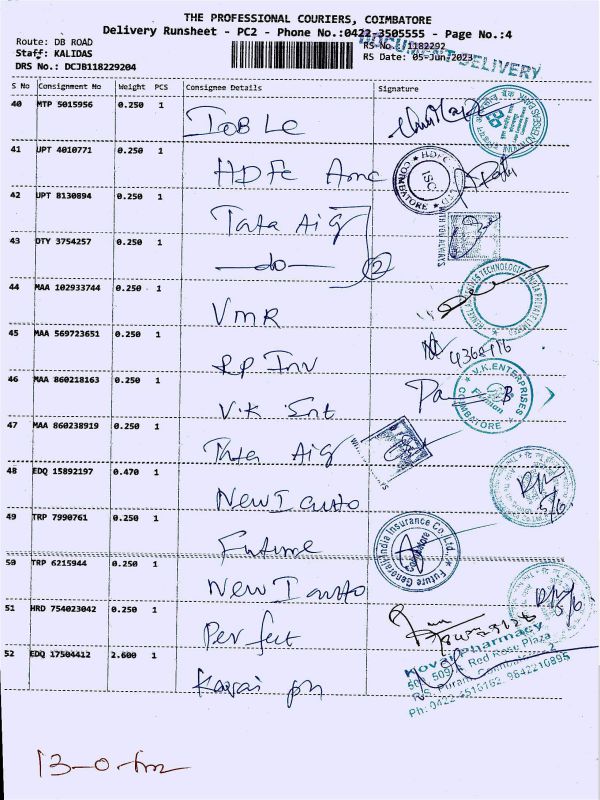 THE PROFESSIONAL COURIERS, COIMBATORE
Delivery Runsheet - PC2 - Phone No.:0422-3505555 - Page No.:4
Route: DB ROAD
Staff: KALIDAS
DRS No.: DCJB118229204
RS No.: 1182292
RS Date: 05-Jun-2023
DOCUMENT DELIVERY
S No Consignment No Weight PCS Consignee Details Signature
40 MTP 5015956 0.250 1
IOB Lc
41 UPT 4010771 0.250 1
HDFC Amc
HDFC
ISC
COIMBATORE
42 UPT 8130894 0.250 1
Tata Aig
WITH YOU ALWAYS
43 DTY 3754257 0.250 1
do 2
44 MAA 102933744 0.250 1
VMR
45 MAA 569723651 0.250 1
Inv
46 MAA 860218163 0.250 1
V.K Ent
V.K.ENTERPRISES
COIMBATORE
47 MAA 860238919 0.250 1
Tata AIG
48 EDQ 15892197 0.470 1
New I auto
5/6
49 TRP 7990761 0.250 1
Future
Future Generali India Insurance Co. Ltd.
50 TRP 6215944 0.250 1
New I auto
5/6
51 HRD 754023042 0.250 1
Perfect
52 EDQ 17504412 2.600 1
Kovai ph
Kovai Pharmacy
Red Rose Plaza
Coimbatore
9842210895